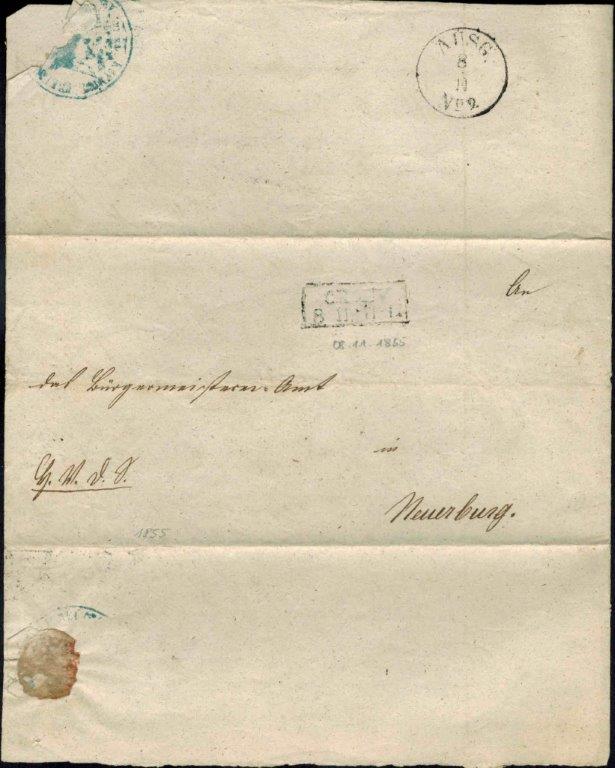 AUSG.
8
11
V 2
8 11 11-1
An
08.11.1855
das Bürgermeisterei-Amt
in
H. V. d. S.
Neuerburg.
1855